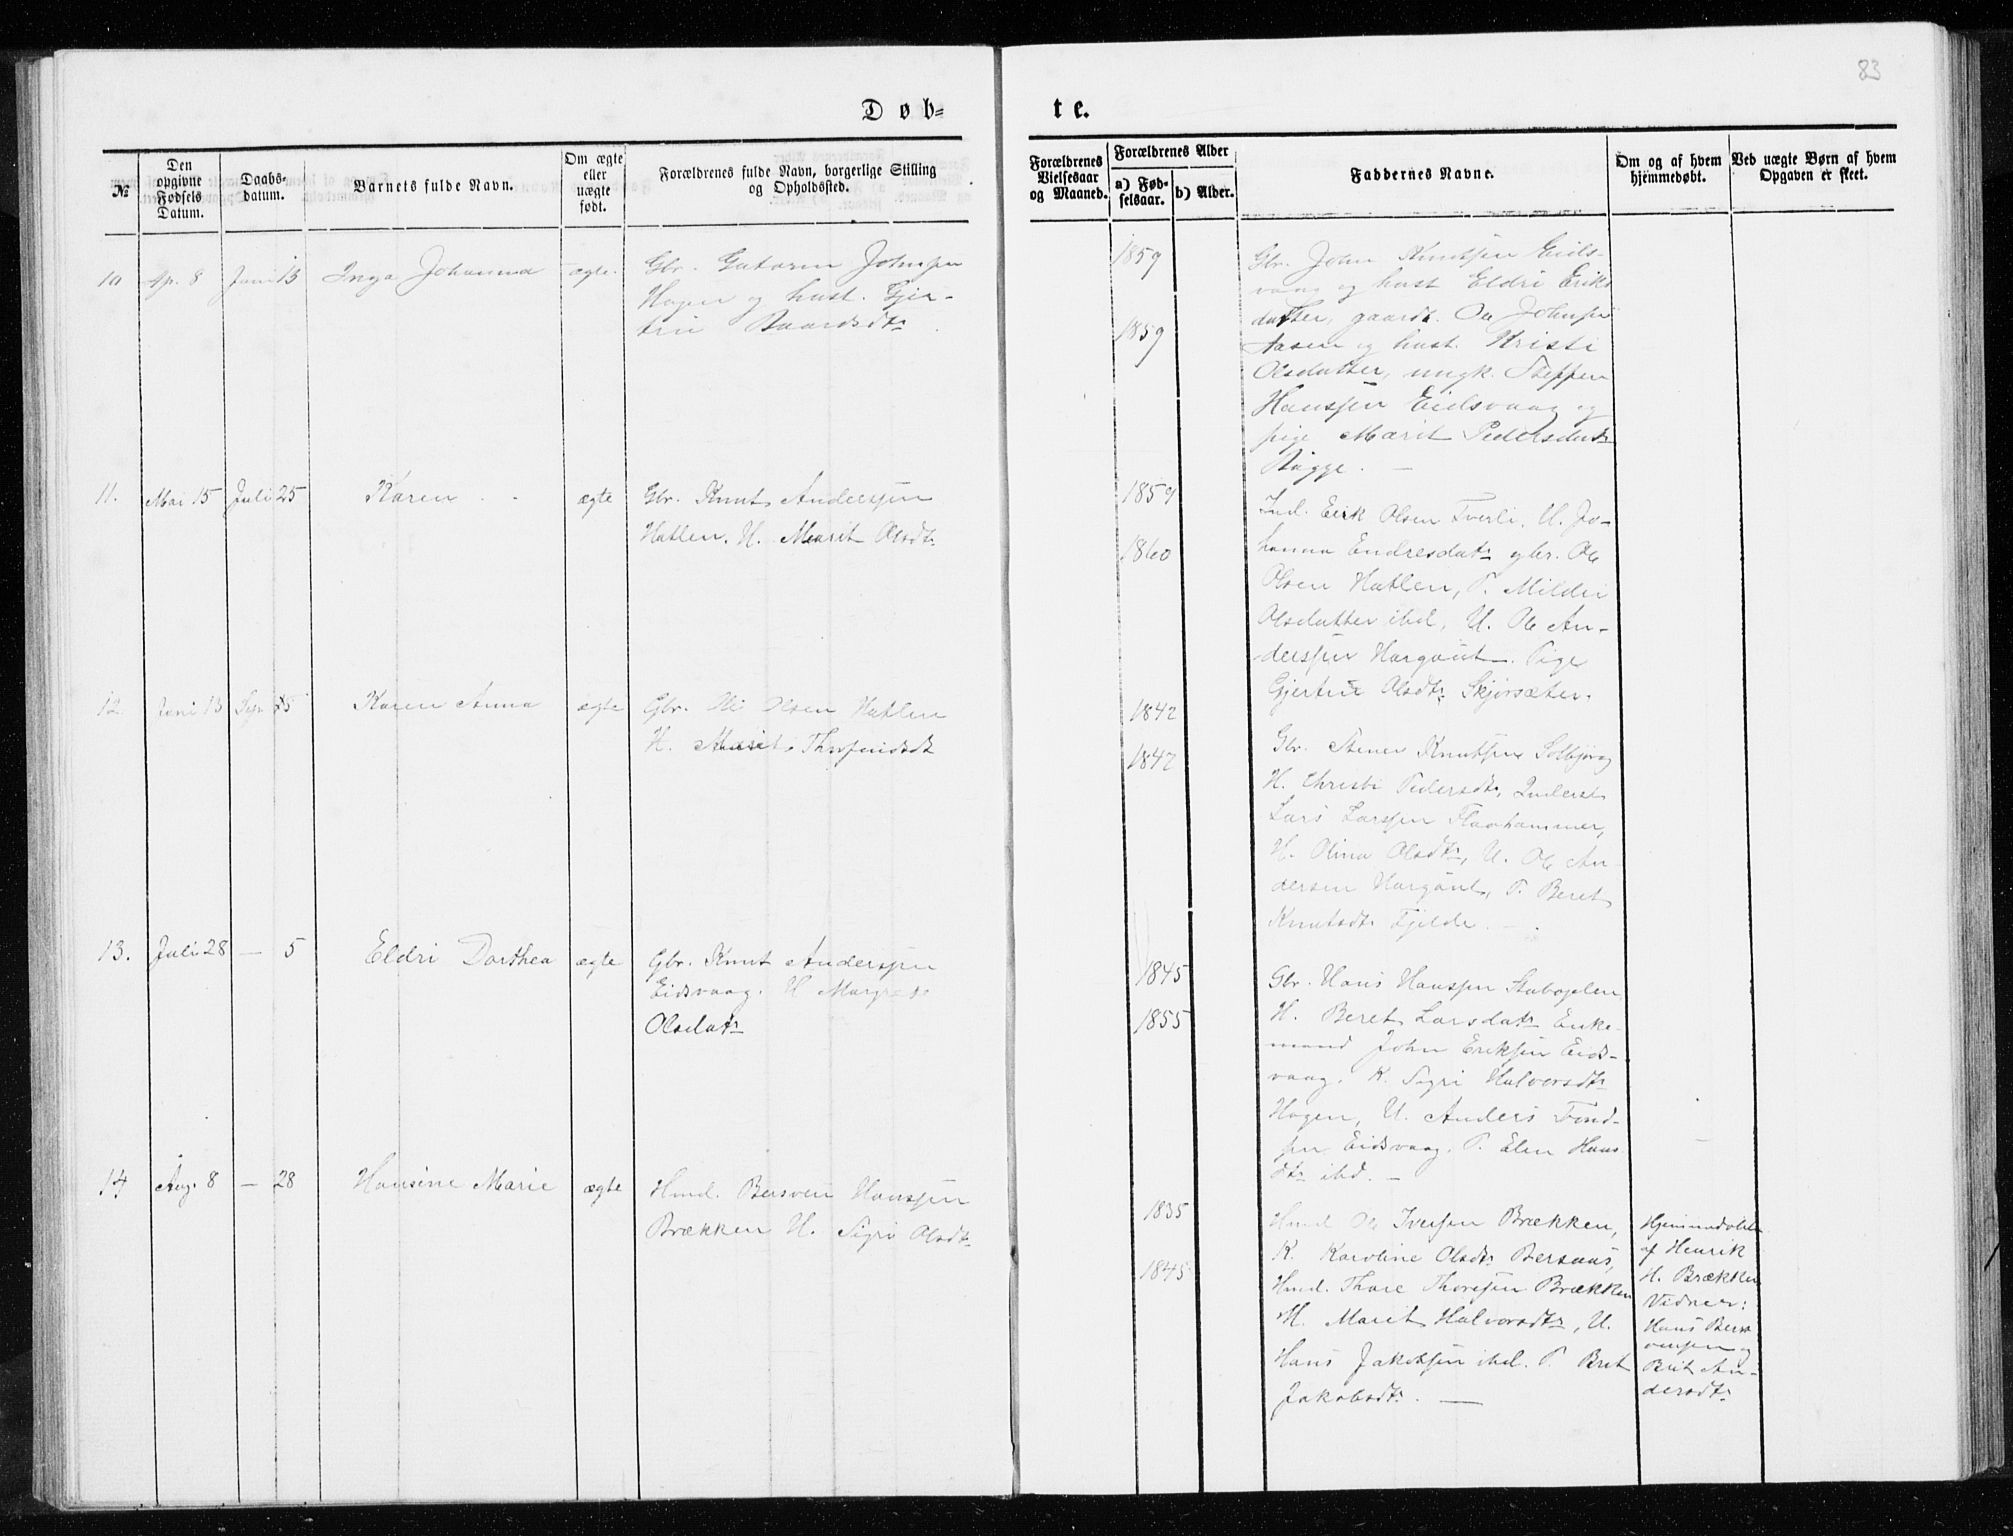 83
Døb=
te.
№
Den opgivne Fødsels Datum.
Daabs-datum.
Barnets fulde Navn.
Om ægte eller uægte født.
Forældrenes fulde Navn, borgerlige Stilling og Opholdssted.
Forældrenes Vielsesaar og Maaned.
Forældrenes Alder
a) Fød-selsaar.
b) Alder.
Faddernes Navne.
Om og af hvem hjemmedøbt.
Ved uægte Børn af hvem Opgaven er skeet.
10 Ap. 8 Juni 13 Inga Johanna ægte.
Gbr. Johnsen
Hagen og hust. Gjer-
trü Baardsdtr
1859
1859
Gbr. John Knutsen Eids-
vaag og hust Eldri Eriks
datter, gaardb. Ole Johnsen
Aasen og hust. Kristi
Olsdatter, ungk. Steffen
Hanssen Eidsvaag og
pige Marit Pedersdatr
Bugge. —
11. Mai 15 Juli 25 Karen ægte
Gbr. Knut Anderssen
Hatlen. H. Marit Olsdtr
1859
1860
Ind. Erik Olsen Tverli. H. Jo-
hanna Endresdatr gbr. Ole
Olsen Hatlen, P. Mildri
Olsdatter ibid. U. Ole An-
derssen Hargaut. Pige
Gjertrü Olsdtr Skjørsæter.
12. Juni 13 Sep 5 Karen Anna ægte
Gbr. Ole Olsen Hatlen
H. Marit
1842
1847
Gbr. Stener Knutsen Solbjørg
H. Christi Pedersdtr, Inderst
Lars Larssen Flaahammer,
H. Olina Olsdtr, U. Ole An-
dersen Hargaut, P. Beret
Knutsdtr Fjelde. —
13. Juli 28 — 5 Eldri Dorthea ægte
Gbr. Knut Anderssen
Eidsvaag. H Margrete
Olsdatr
1845
1855
Gbr. Hans Hanssen
H. Beret Larsdatr Enke-
mand John Eriksen Eids-
vaag. K. Sigri Halvorsdtr
Hagen, U. Anders Tond-
sen Eidsvaag. P. Elen Hans
dtr ibd. —
14 Aug. 8 — 28 Hansine Marie ægte
Hmd. Bersven Hanssen
Brækken H. Sigri Olsdtr
1835
1845
Hmd Ole Iversen Brækken,
K. Karoline Olsdtr Bersaas,
Hmd. Thore Thoresen Brækken
H. Marit Halvorsdtr, U.
Hans Jakobsen ibid. P. Brit
Jakobsdtr. —
Hjemmedøbt
af Henrik
H. Brækken
Vidner:
Hans Bers-
vensen og
Brit An-
dersdtr